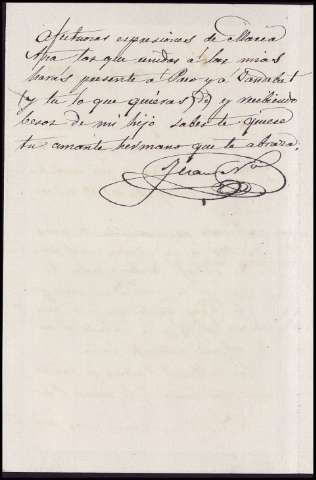 afectuosas espresiones de Maria
Ana las que unidas a las mias
haras presente a Pue y a
(y tu lo que quieras) y recibiendo
besos de mi hijo sabes te quiere
tu amante hermano que te abraza.
Juan